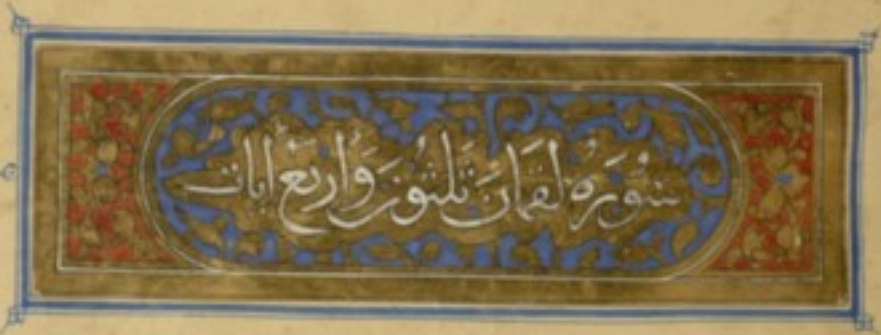 سُوْرَةُ لقمَانَ ثَلثُوْنَ وَأربَعُ ايات